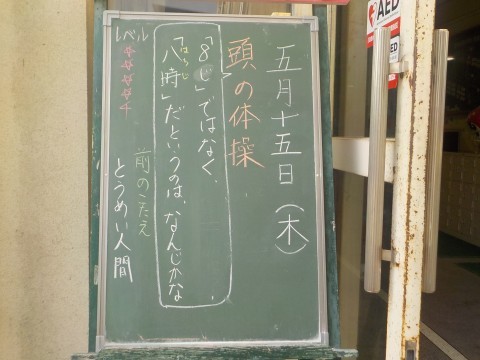 五月十五日（木）
頭の体操
「8じ」ではなく、
「八時」だというのは、なんじかな
はちじ
前のこたえ
とうめい人間
レベル
☆☆☆☆☆
AED